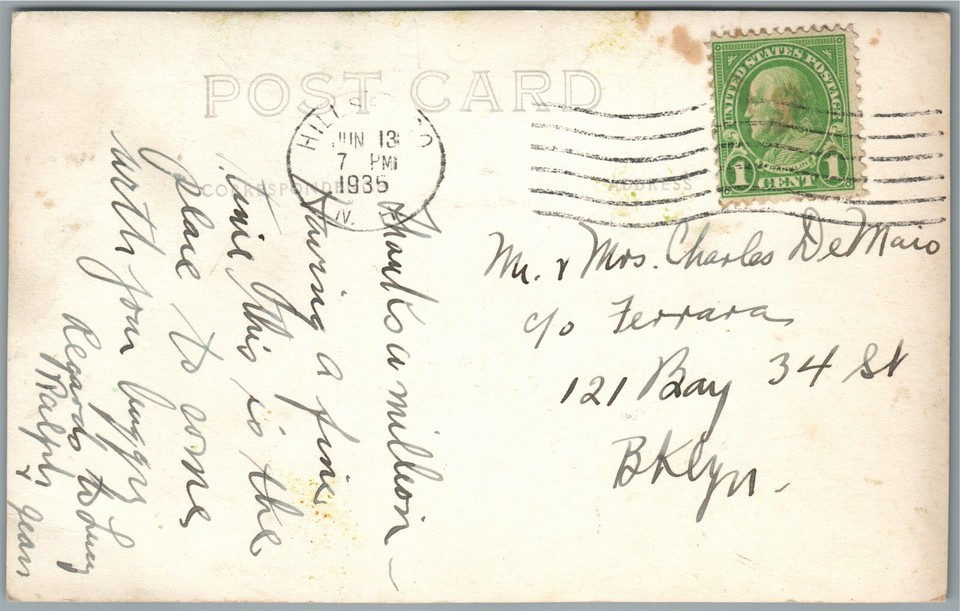 POST CARD
CORRESPONDENCE
ADDRESS
HILLS
JUN 13
7 PM
1935
UNITED STATES POSTAGE
FRANKLIN
1 CENT 1
Mr. & Mrs. Charles DeMaio
c/o Ferrara
121 Bay 34 St
Bklyn.
Thanks a million –
Having a fine
time this is the
place to come
with your buggy
Regards to
Ralph
& Jean